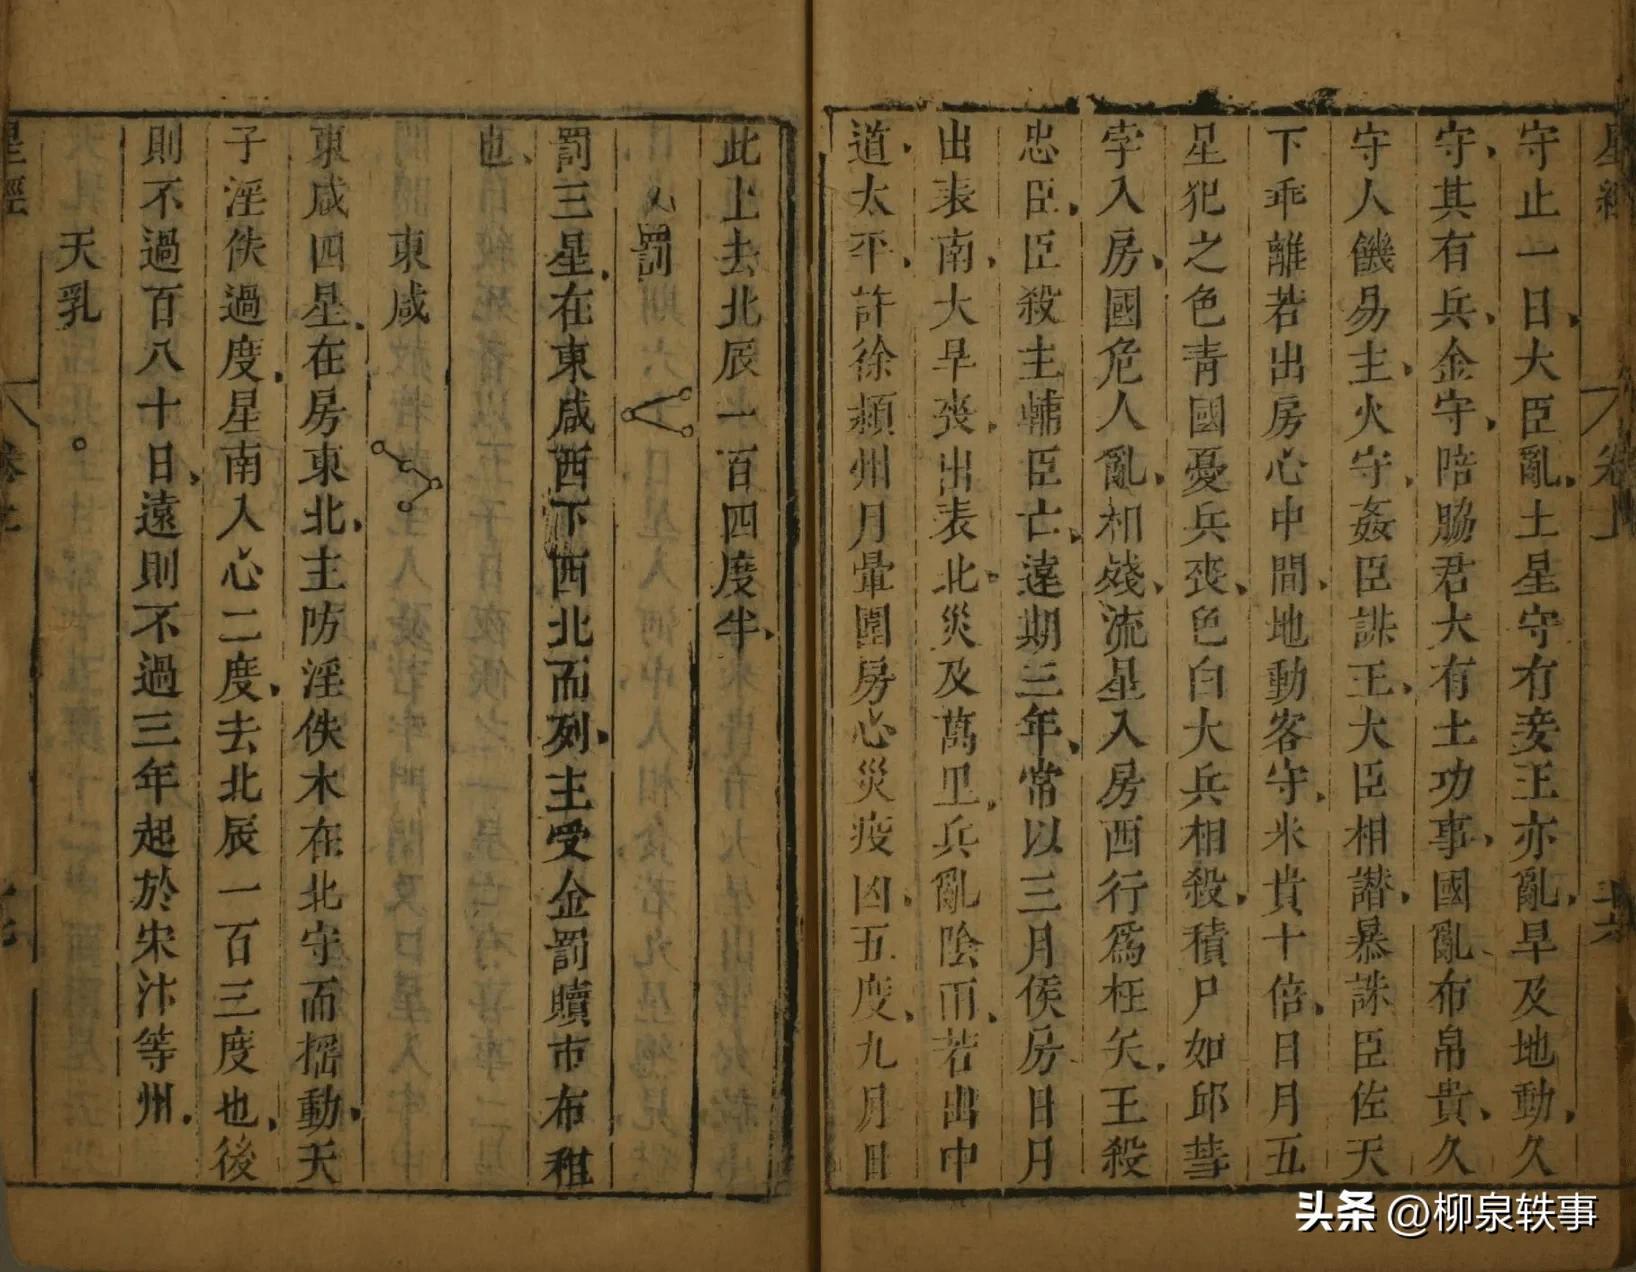 星經
卷上
守止一日大臣亂土星守冇妾王亦亂旱及地動久
守其有兵金守陪脇君大有土功事國亂布帛貴久
守人饑易主火守姦臣謀王大臣相譖暴誅臣佐天
下乖離若出房心中間地動客守米貴十倍日月五
星犯之色青國憂兵喪色白大兵相殺積尸如邱彗
孛入房國危人亂相殘流星入房西行爲枉矢王殺
忠臣臣殺主輔臣亡遠期三年常以三月候房日月
出表南大旱喪出表北災及萬里兵亂陰雨若出中
道太平許徐潁州月暈圍房心災疫凶五度九月日
此上去北辰一百四度半
罰
罰三星在東咸西下西北而列主受金罰贖市布租
也
東咸
東咸四星在房東北主防淫佚木在北守而搖動天
子淫佚過度星南入心二度去北辰一百三度也後
則不過百八十日遠則不過三年起於宋汴等州
天乳
星經
卷上
头条 @柳泉轶事